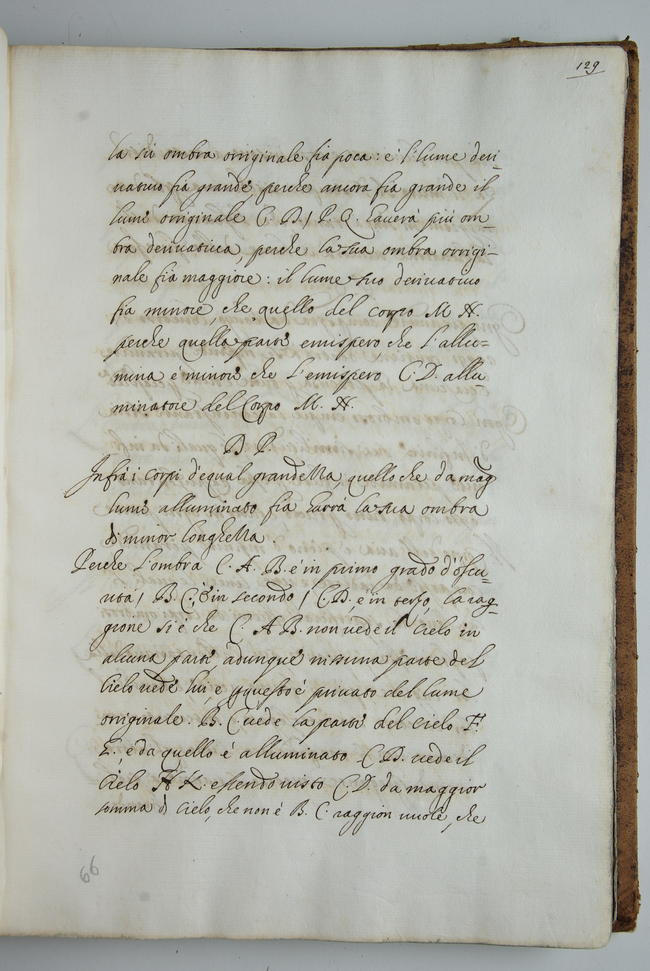 129
la sù ombra originale fia poca: e' l' lume deri-
uatiuo fia grande perche ancora fia grande il
lume originale C. B / P. Q. hauerà più om-
bra deriuatiua, perche la sua ombra origi-
nale fia maggiore: il lume suo deriuatiuo
fia minore, che quello del corpo M N.
perche quella parte emispero, che l'allu-
mina è minore che l'emispero C. D. allu-
minatore del Corpo M. N.
B P.
Infra i corpi d'equal grandezza quello che da mag
lume alluminato fia harrà la sua ombra
di minor longhezza.
Perche l'ombra C. A. B. è in primo grado d'oscu-
rità / B. C. è in secondo / C. D. è in terzo, la rag-
gione si è che C. A B. non uede il cielo in
alcuna parte, adunque nissuna parte del
Cielo uede lui, e questo è priuato del lume
originale. B. C. uede la parte del cielo F.
E., e da quello è alluminato C D. uede il
Cielo H K. essendo uisto C. D. da maggior
somma di Cielo, che non è B. C. raggion uuole, che
66